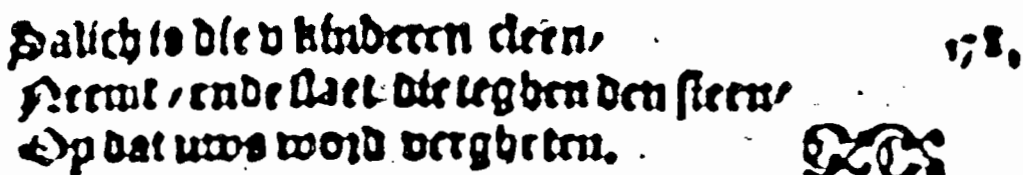 Salich is die v kinderen cleen,
Neemt, ende slaet die teghen den steen,
Op dat uws word vergheten.